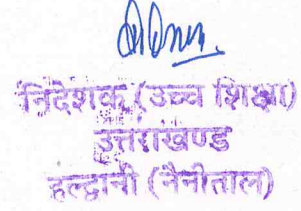 निदेशक (उच्च शिक्षा)
उत्तराखण्ड
हल्द्वानी (नैनीताल)